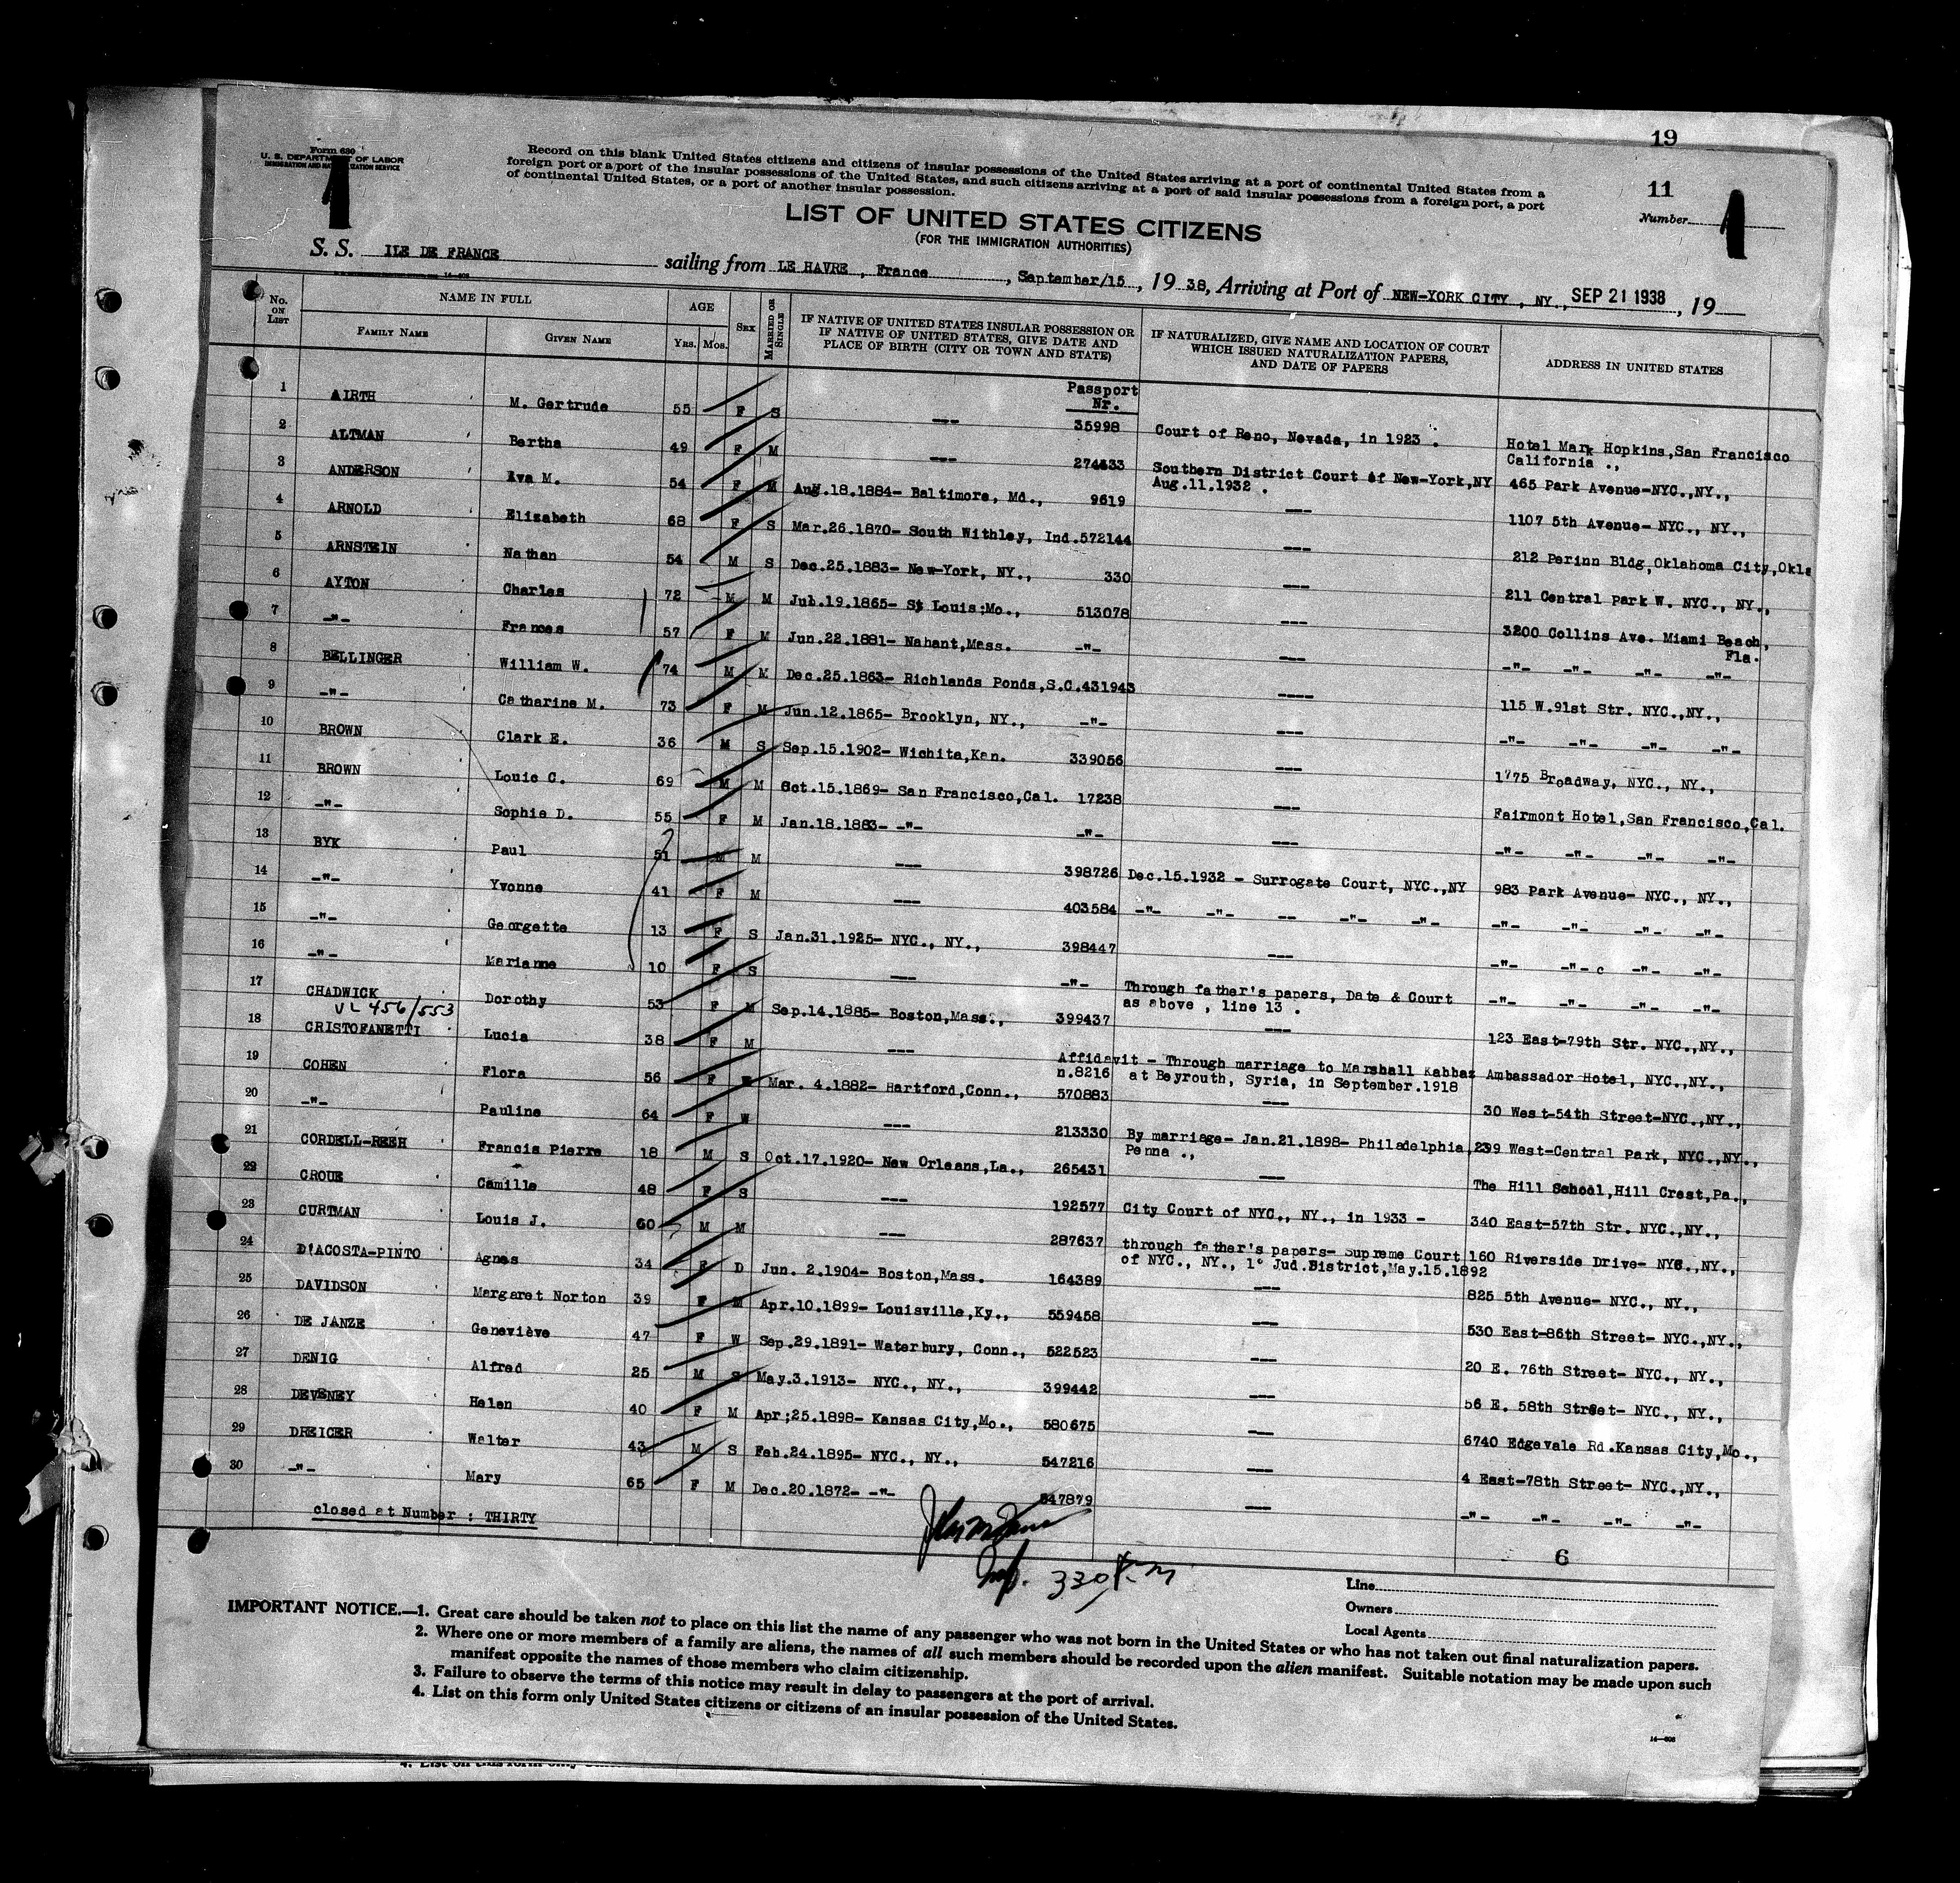 19
Form 630
U. S. DEPARTMENT OF LABOR
IMMIGRATION AND NATURALIZATION SERVICE
Record on this blank United States citizens and citizens of insular possessions of the United States arriving at a port of continental United States from a
foreign port or a port of the insular possessions of the United States, and such citizens arriving at a port of said insular possessions from a foreign port, a port
of continental United States, or a port of another insular possession.
11
Number 1
1
LIST OF UNITED STATES CITIZENS
(FOR THE IMMIGRATION AUTHORITIES)
S. S. ILE DE FRANCE sailing from LE HAVRE, France, September/15, 19 38, Arriving at Port of NEW-YORK CITY, NY., SEP 21 1938, 19
No. ON LIST NAME IN FULL FAMILY NAME GIVEN NAME AGE YRS. MOS. SEX MARRIED OR SINGLE IF NATIVE OF UNITED STATES INSULAR POSSESSION OR IF NATIVE OF UNITED STATES, GIVE DATE AND PLACE OF BIRTH (CITY OR TOWN AND STATE) IF NATURALIZED, GIVE NAME AND LOCATION OF COURT WHICH ISSUED NATURALIZATION PAPERS, AND DATE OF PAPERS ADDRESS IN UNITED STATES
Passport
Nr.
1 AIRTH M. Gertrude 55 F S --- 35998 Court of Reno, Nevada, in 1923 . Hotel Mark Hopkins,San Francisco
California .,
2 ALTMAN Bertha 49 F M --- 274533 Southern District Court of New-York,NY 465 Park Avenue-NYC.,NY.,
Aug.11.1932 .
3 ANDERSON Ava M. 54 F M Aug.18.1884- Baltimore, Md., 9619 --- 1107 5th Avenue- NYC., NY.,
4 ARNOLD Elizabeth 68 F S Mar.26.1870- South Withley, Ind.572144 --- 212 Perinn Bldg,Oklahoma City,Okla
5 ARNSTEIN Nathan 54 M S Dec.25.1883- New-York, NY., 330 --- 211 Central Park W. NYC., NY.,
6 AYTON Charles 72 M M Jul.19.1865- St Louis;Mo., 513078 --- 3200 Collins Ave. Miami Beach,
Fla.
7 -"- Frances 57 F M Jun.22.1881- Nahant,Mass. -"- --- -"- -"- -"- -"-
8 BELLINGER William W. 74 M M Dec.25.1863- Richlands Ponds,S.C.431943 ---- 115 W.91st Str. NYC.,NY.,
9 -"- Catharine M. 73 F M Jun.12.1865- Brooklyn, NY., -"- --- -"- -"- -"- -"-
10 BROWN Clark E. 36 M S Sep.15.1902- Wichita,Kan. 339056 --- 1775 Broadway, NYC., NY.,
11 BROWN Louic C. 69 M M Oct.15.1869- San Francisco,Cal. 17238 --- Fairmont Hotel,San Francisco,Cal.
12 -"- Sophie D. 55 F M Jan.18.1883- -"- -"- --- -"- -"- -"- -"-
13 BYK Paul 51 M M --- 398726 Dec.15.1932 - Surrogate Court, NYC.,NY 983 Park Avenue- NYC., NY.,
14 -"- Yvonne 41 F M --- 403584 -"- -"- -- -"- -"- -"- -"- -"- -"-
15 -"- Georgette 13 F S Jan.31.1925- NYC., NY., 398447 --- -"- -"- c -"- -"-
16 -"- Marianne 10 F S --- -"- Through father's papers, Date & Court -"- -"- -"- -"-
as above , line 13 .
17 CHADWICK Dorothy 53 F M Sep.14.1885- Boston,Mass., 399437 --- 123 East-79th Str. NYC.,NY.,
VL 456/553
18 CRISTOFANETTI Lucia 38 F M --- Affidavit - Through marriage to Marshall Kabbaz Ambassador Hotel, NYC.,NY.,
n.8216 at Beyrouth, Syria, in September.1918
19 COHEN Flora 56 F Mar. 4.1882- Hartford,Conn., 570883 --- 30 West-54th Street-NYC.,NY.,
20 -"- Pauline 64 F W --- 213330 By marriage- Jan.21.1898- Philadelphia, 239 West-Central Park, NYC.,NY.,
Penna .,
21 CORDELL-REEH Francis Pierre 18 M S Oct.17.1920- New Orleans,La., 265431 --- The Hill School,Hill Crest,Pa.,
22 CROUE Camille 48 F S --- 192577 City Court of NYC., NY., in 1933 - 340 East-57th Str. NYC.,NY.,
23 CURTMAN Louis J. 60 M M --- 287637 through father's papers- Supreme Court 160 Riverside Drive- NYC.,NY.,
of NYC., NY., 1° Jud.District,May.15.1892
24 D'ACOSTA-PINTO Agnes 34 F D Jun. 2.1904- Boston,Mass. 164389 --- 825 5th Avenue- NYC., NY.,
25 DAVIDSON Margaret Norton 39 F M Apr.10.1899- Louisville,Ky., 559458 --- 530 East-86th Street- NYC.,NY.,
26 DE JANZE Geneviève 47 F W Sep.29.1891- Waterbury, Conn., 522523 --- 20 E. 76th Street- NYC., NY.,
27 DENIG Alfred 25 M S May.3.1913- NYC., NY., 399442 --- 56 E. 58th Street- NYC., NY.,
28 DEVENEY Helen 40 F M Apr;25.1898- Kansas City,Mo., 580675 --- 6740 Edgevale Rd.Kansas City,Mo.,
29 DREICER Walter 43 M S Feb.24.1895- NYC., NY., 547216 --- 4 East-78th Street- NYC.,NY.,
30 -"- Mary 65 F M Dec.20.1872- -"- 547879 --- -"- -"- -"- -"-
closed at Number : THIRTY
6
330
Line
Owners
Local Agents
IMPORTANT NOTICE.—1. Great care should be taken not to place on this list the name of any passenger who was not born in the United States or who has not taken out final naturalization papers.
2. Where one or more members of a family are aliens, the names of all such members should be recorded upon the alien manifest. Suitable notation may be made upon such
manifest opposite the names of those members who claim citizenship.
3. Failure to observe the terms of this notice may result in delay to passengers at the port of arrival.
4. List on this form only United States citizens or citizens of an insular possession of the United States.
14—606